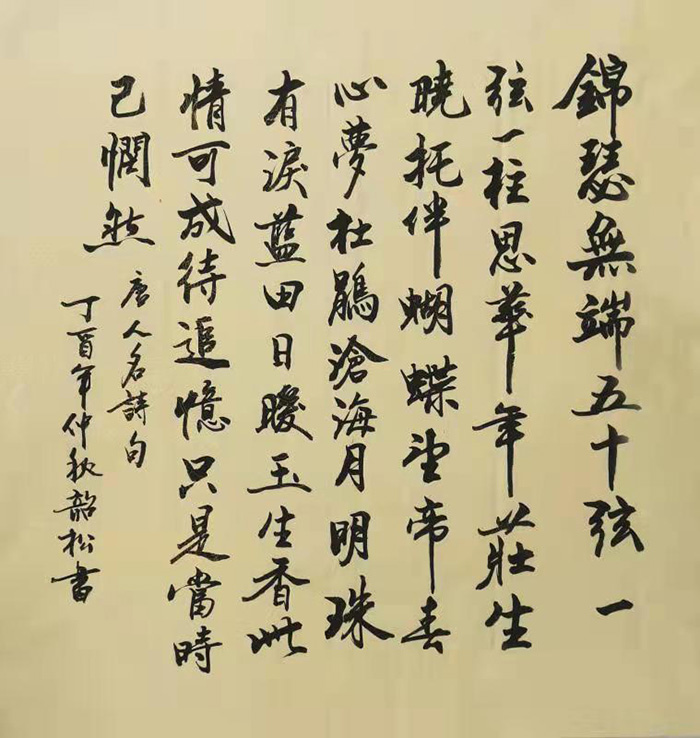 錦瑟無端五十弦一
弦一柱思華年莊生
曉托伴蝴蝶望帝春
心夢杜鵑滄海月明珠
有淚藍田日暖玉生香此
情可成待追憶只是當時
已憫然
唐人名詩句
丁酉年仲秋韶松書